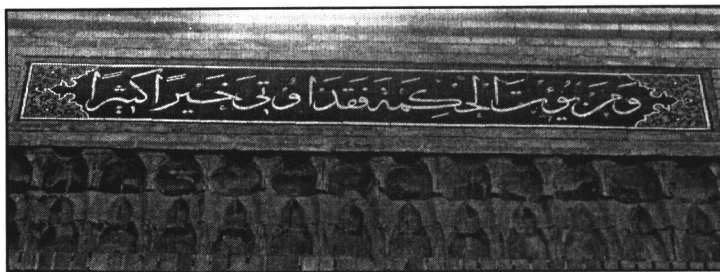 وَمَنْ يُؤْتَ الْحِكْمَةَ فَقَدْ أُوتِيَ خَيْرًا كَثِيرًا